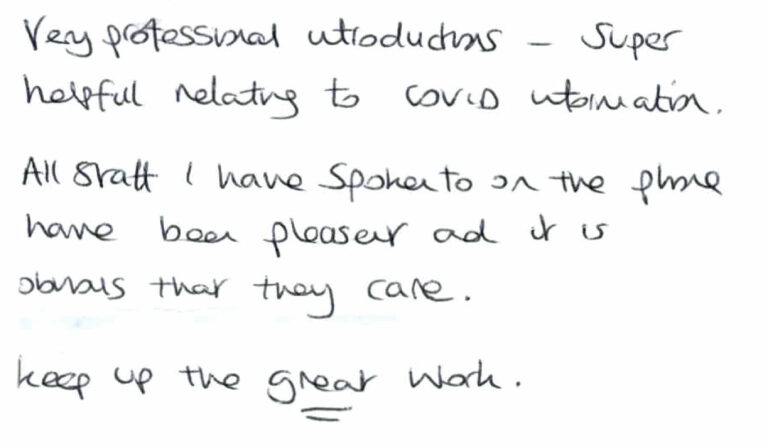 Very professional introductions – Super
helpful relating to COVID information.
All staff I have spoken to on the phone
have been pleasant and it is
obvious that they care.
keep up the great work.